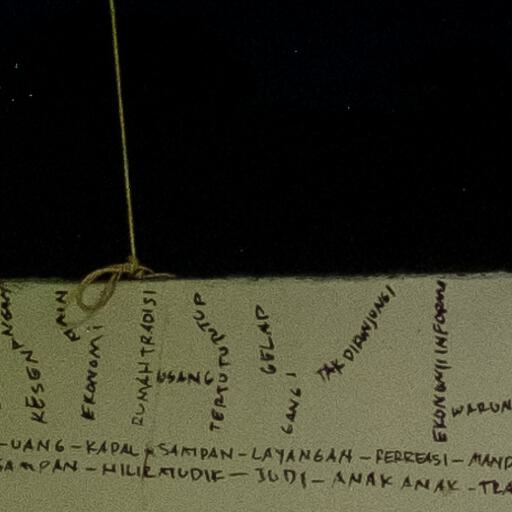 KESENANGAN
AIN
EKONOMI
RUMAH TRADISI
USANG
TERTUTUP
GELAP
GANG
TAK DIKUNJUNGI
EKONOMI INFORM
WARUN
-UANG-KAPAL-SAMPAN-LAYANGAN-REKREASI-MAND
SAMPAN-HILIRMUDIK-JUDI-ANAK ANAK-TRA